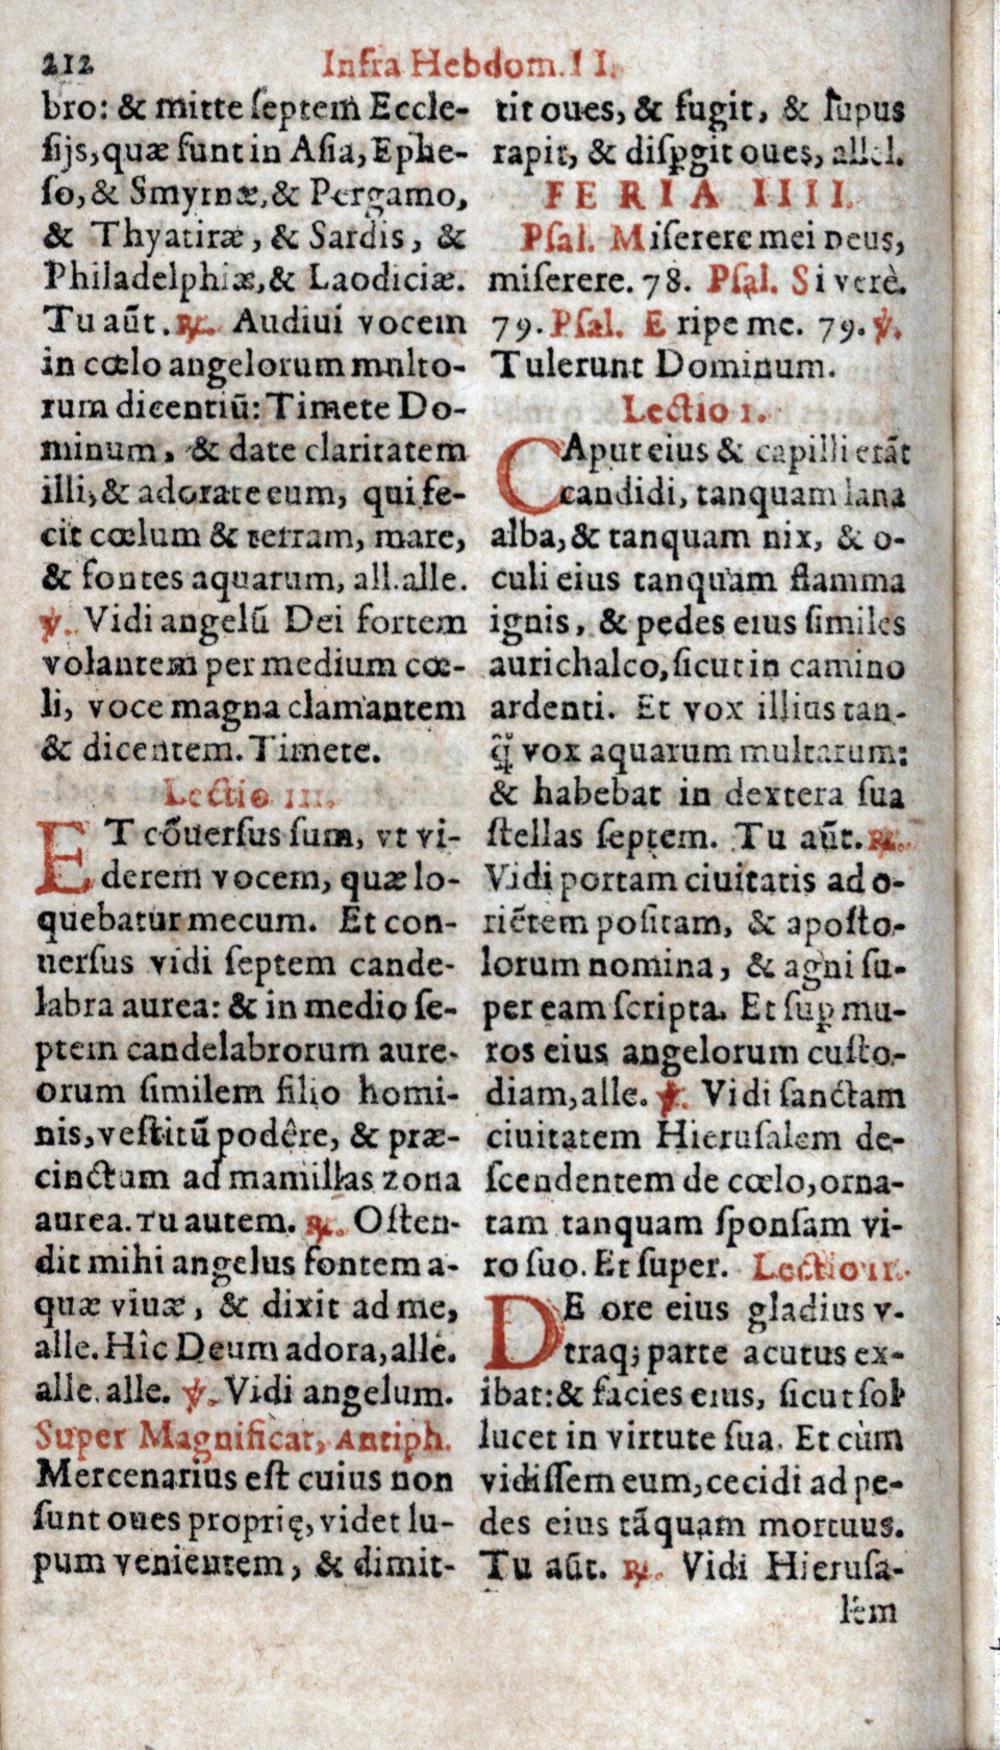 212
Infra Hebdom. II.
bro: & mitte ſeptem Eccle-
ſijs, quæ ſunt in Aſia, Ephe-
ſo, & Smyrnæ, & Pergamo,
& Thyatiræ, & Sardis, &
Philadelphiæ, & Laodiciæ.
Tu aūt. ℟. Audiui vocem
in cœlo angelorum multo-
rum dicentiū: Timete Do-
minum, & date claritatem
illi, & adorate eum, qui fe-
cit cœlum & terram, mare,
& fontes aquarum, all. alle.
℣. Vidi angelū Dei fortem
volantem per medium cœ-
li, voce magna clamantem
& dicentem. Timete.
Lectio III.
ET cōuerſus ſum, vt vi-
derem vocem, quæ lo-
quebatur mecum. Et con-
uerſus vidi ſeptem cande-
labra aurea: & in medio ſe-
ptem candelabrorum aure-
orum ſimilem filio homi-
nis, veſtitū podêre, & præ-
cinctum ad mamillas zona
aurea. Tu autem. ℟. Oſten-
dit mihi angelus fontem a-
quæ viuæ, & dixit ad me,
alle. Hîc Deum adora, alle.
alle. alle. ℣. Vidi angelum.
Super Magnificat, Antiph.
Mercenarius eſt cuius non
ſunt oues proprię, videt lu-
pum venientem, & dimit-
tit oues, & fugit, & lupus
rapit, & diſꝑgit oues, allel.
FERIA IIII.
Pſal. Miſerere mei Deus,
miſerere. 78. Pſal. Si verè.
79. Pſal. Eripe me. 79. ℣.
Tulerunt Dominum.
Lectio I.
CAput eius & capilli erāt
candidi, tanquam lana
alba, & tanquam nix, & o-
culi eius tanquam flamma
ignis, & pedes eius ſimiles
aurichalco, ſicut in camino
ardenti. Et vox illius tan-
q̃ vox aquarum multarum:
& habebat in dextera ſua
ſtellas ſeptem. Tu aūt. ℟.
Vidi portam ciuitatis ad o-
riētem poſitam, & apoſto-
lorum nomina, & agni ſu-
per eam ſcripta. Et ſuꝑ mu-
ros eius angelorum cuſto-
diam, alle. ℣. Vidi ſanctam
ciuitatem Hieruſalem de-
ſcendentem de cœlo, orna-
tam tanquam ſponſam vi-
ro ſuo. Et ſuper. Lectio II.
DE ore eius gladius v-
traq; parte acutus ex-
ibat: & facies eius, ſicut ſol
lucet in virtute ſua. Et cùm
vidiſſem eum, cecidi ad pe-
des eius tāquam mortuus.
Tu aūt. ℟. Vidi Hieruſa-
lem